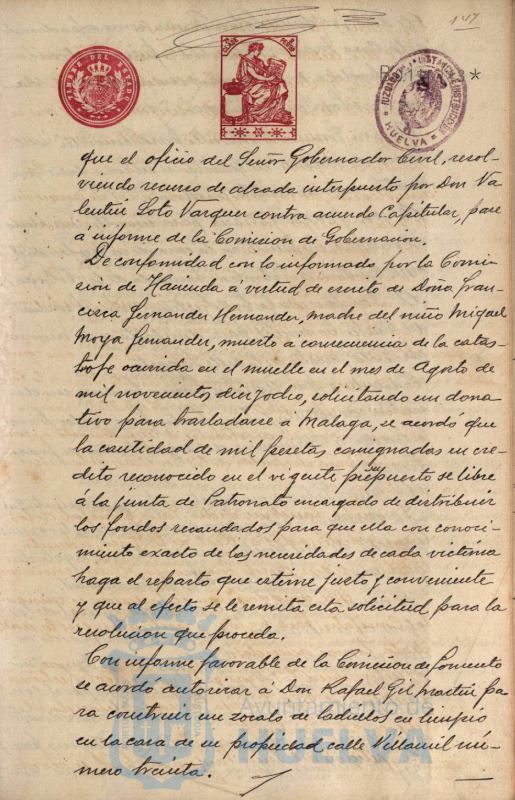 147
TIMBRE DEL ESTADO
JUZGADO DE 1ª INSTANCIA E INSTRUCCION
* HUELVA *
que el oficio del Señor Gobernador Civil, resol-
viendo recurso de alzada interpuesto por Don Va-
lentin Soto Vazquez contra acuerdo Capitular, pase
á informe de la Comision de Gobernacion.
De conformidad con lo informado por la Comi-
sion de Hacienda á virtud de escrito de Doña Fran-
cisca Fernandez Hernandez, madre del niño Miguel
Moya Fernandez, muerto á consecuencia de la catas-
trofe ocurrida en el muelle en el mes de Agosto de
mil novecientos diezyocho, solicitando un dona-
tivo para trasladarse á Malaga, se acordó que
la cantidad de mil pesetas consignadas en cre-
dito reconocido en el vigente presupuesto se libre
á la junta de Patronato encargado de distribuir
los fondos recaudados para que ella con conoci-
miento exacto de las necesidades de cada victima
haga el reparto que estime justo y conveniente
y que al efecto se le remita esta solicitud para la
resolucion que proceda.
Con informe favorable de la Comision de Fomento
se acordó autorizar á Don Rafael Gil Martin pa-
ra construir un zocalo de ladrillos en limpio
en la casa de su propiedad calle Villamil nú-
mero treinta.
Ayuntamiento de
HUELVA